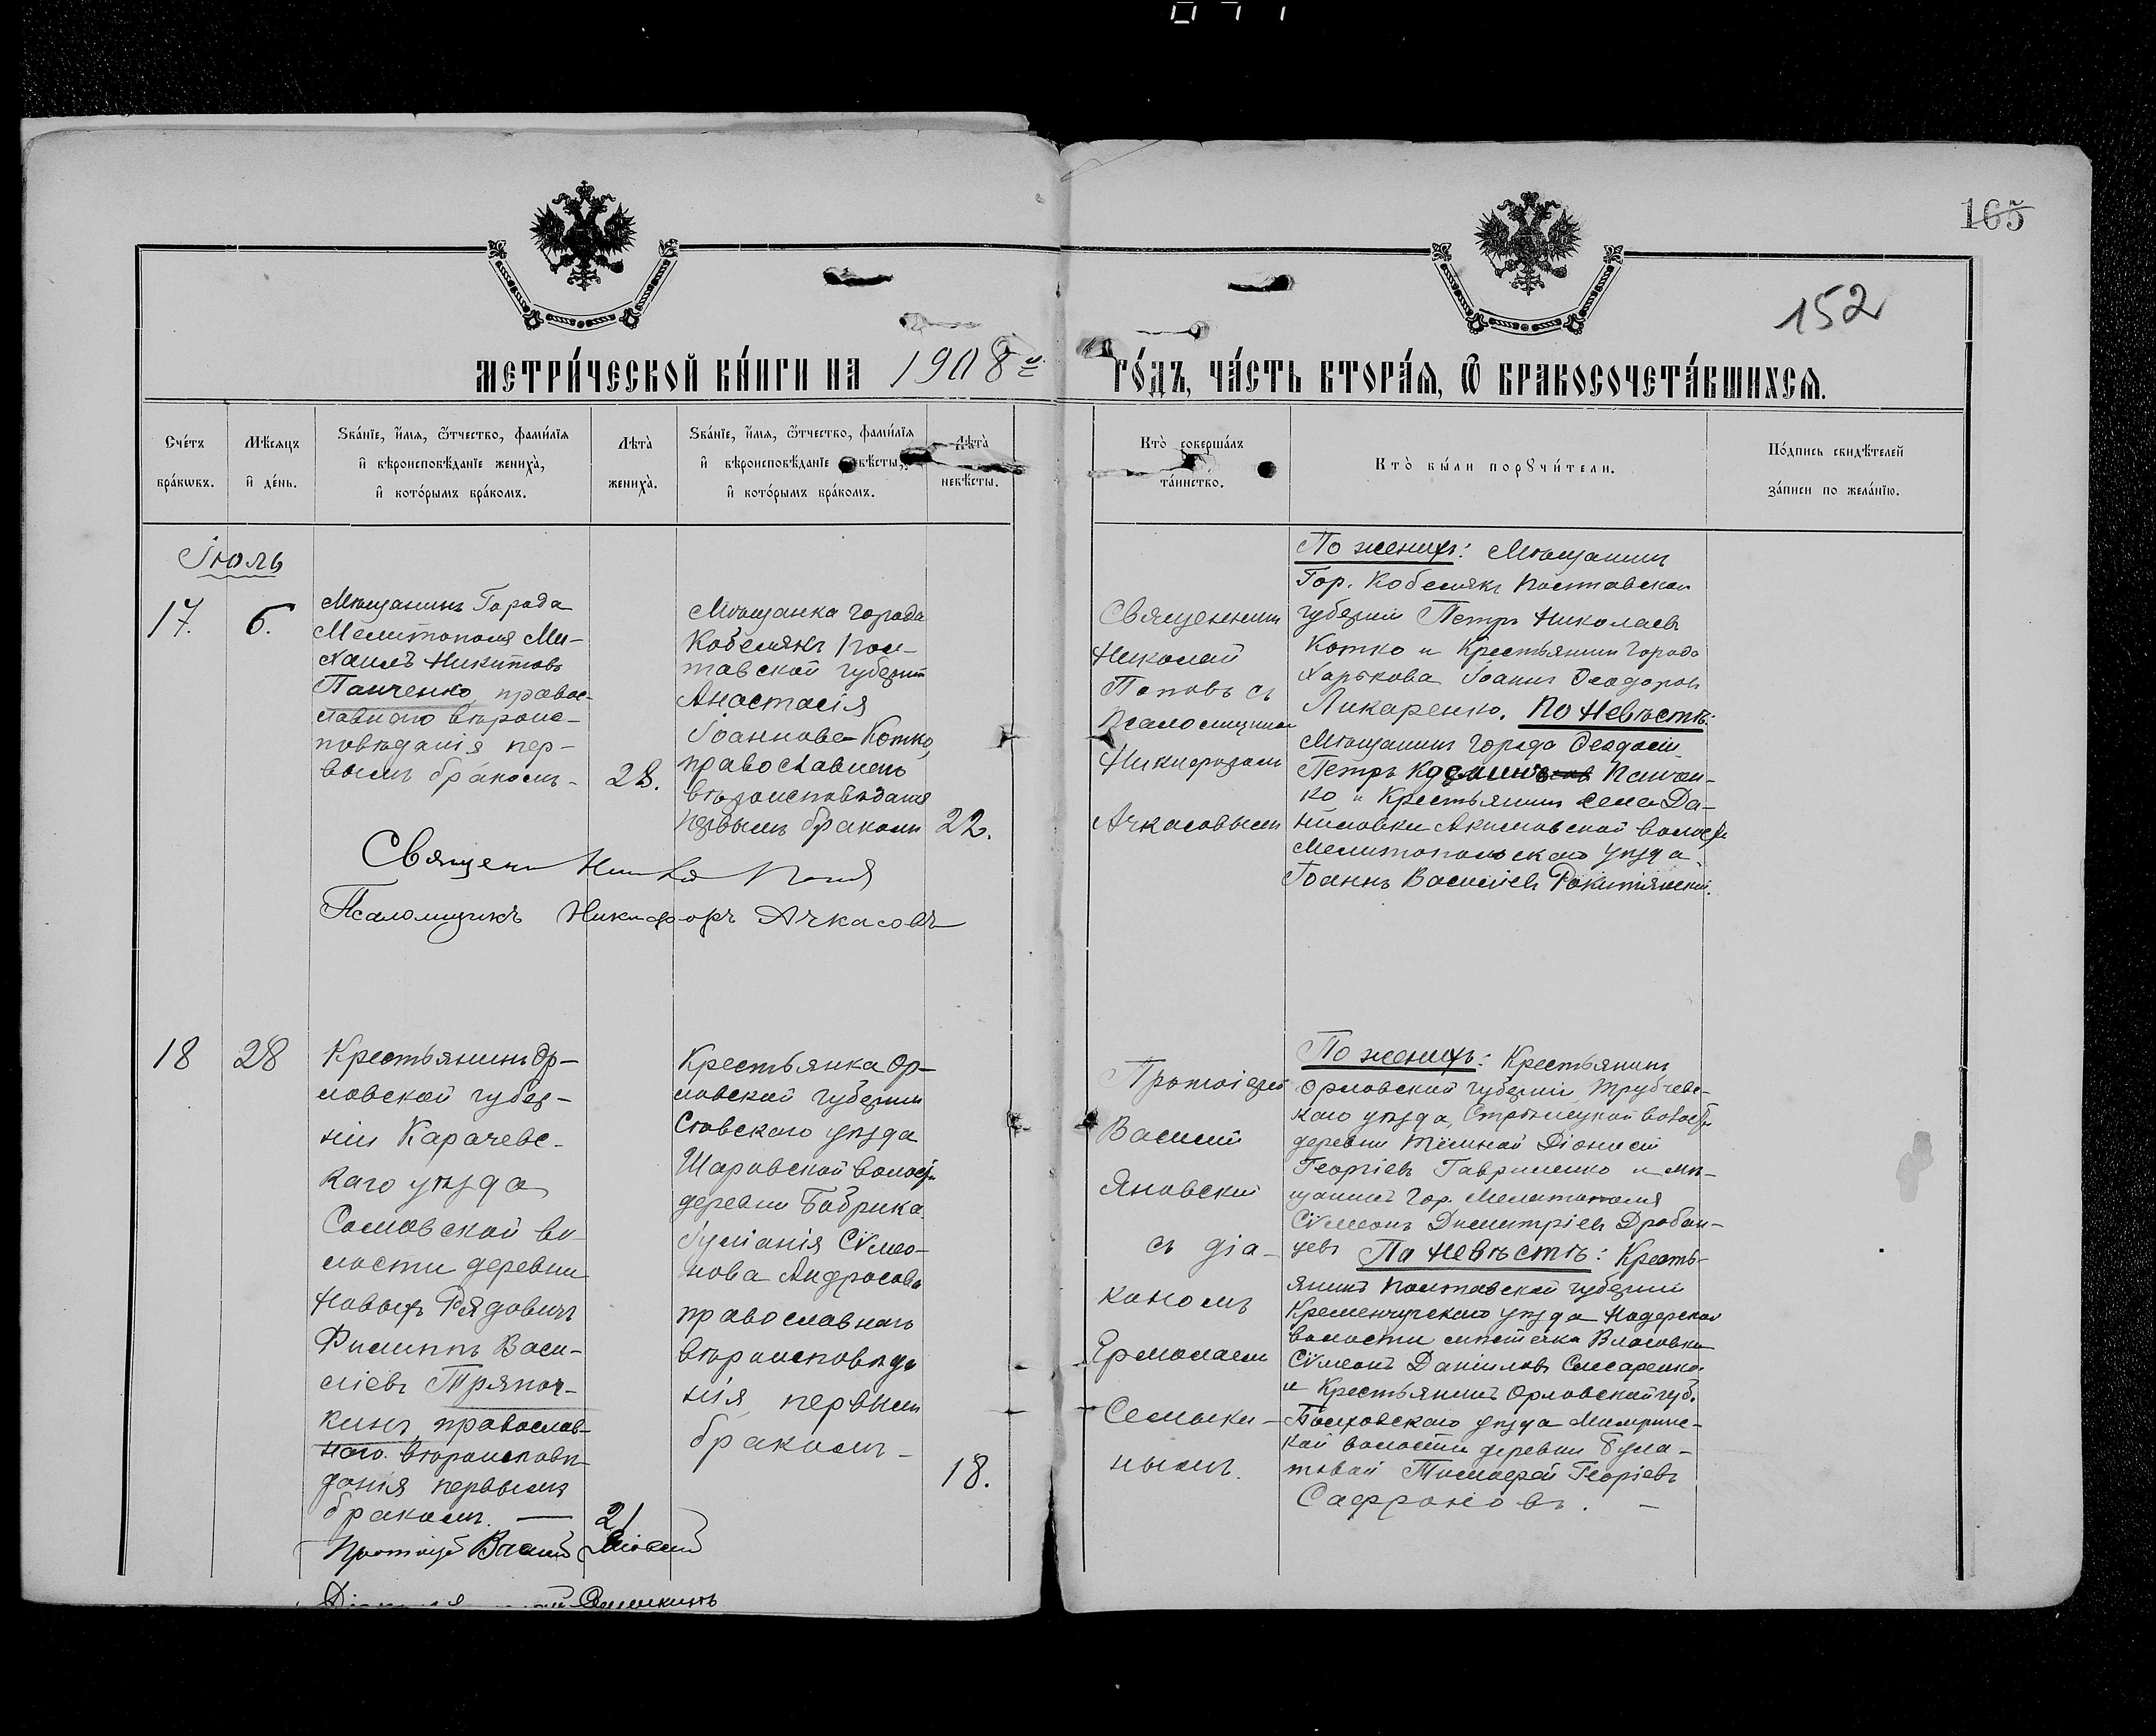 165
152
МЕТРИ́ЧЕСКОЙ КНИ́ГИ НА 1908й ГО́ДЪ, ЧА́СТЬ ВТОРА́Я, Ѿ БРАКОСОЧЕТА́ВШИХСЯ.
Сче́тъ бра́кѡвъ.
Мѣ́сяцъ и҆ де́нь.
Ѕва́нїе, и҆́мя, ѻ҆́тчество, фами́лїя
и҆ вѣроисповѣ́данїе жениха̀,
и҆ кото́рымъ бра́комъ.
Лѣта̀ жениха̀.
Ѕва́нїе, и҆́мя, ѻ҆́тчество, фами́лїя
и҆ вѣроисповѣ́данїе невѣ́сты,
и҆ кото́рымъ бра́комъ.
Лѣта̀ невѣ́сты.
Кто̀ соверша́лъ та́инство.
Кто̀ бы́ли порꙋчи́тели.
По́дпись свидѣ́телей
за́писи по жела́нїю.
Іюль
17.
6.
Мѣщанинъ Города
Мелитополя Ми-
хаилъ Никитовъ
Панченко, правос-
славнаго вѣроис-
повѣданія пер-
вымъ бракомъ-
28.
Мѣщанка города
Кобелякъ Пол-
тавской губерніи
Анастасія
Іоаннова Котко,
православнаго
вѣроисповѣданія
первымъ бракомъ
22.
Священникъ
Николай
Поповъ съ
Псаломщикомъ
Никифоромъ
Ачкасовымъ
По женихѣ: Мѣщанинъ
Гор. Кобелякъ Полтавской
губерніи Петръ Николаевъ
Котко и Крестьянинъ города
Харькова Іоаннъ Ѳеодоровъ
Ликаренко. По Невѣстѣ:
Мѣщанинъ города Ѳеодосіи
Петръ
ко и Крестьянинъ села Да-
ниловки Акимовской волости
Мелитопольскаго уѣзда
Іоаннъ Василіевъ Рокитянскій.
Священ
Псаломщикъ Никифоръ Ачкасовъ
18
28
Крестьянинъ Ор-
ловской губер-
ніи Карачевс-
каго уѣзда
Самовской во
лости деревни
Новыхъ Рядовичъ
Филиппъ Васи-
ліевъ Тряпоч-
кинъ, православ-
наго вѣроисповѣ-
данія первымъ
бракомъ. —
21
Крестьянка Ор-
ловской губерніи
Сѣвскаго уѣзда
Шаровской волости
деревни Фабрика
Іуліанія Сѵмео-
нова Андросова
православнаго
вѣроисповѣда
нія, первымъ
бракомъ -
18.
Протоіерей
Василій
Яновскій
съ діа-
кономъ
Ермолаемъ
Семыки-
нымъ.
По женихѣ: Крестьянинъ
Орловской губерніи Трубчевс-
каго уѣзда, Стрѣлецкой волости
деревни Тёмной Діонисій
Георгіевъ Гавриленко и мѣ-
щанинъ Гор. Мелитополя
Сѵмеонъ Димитріевъ Дробян-
цевъ По Невѣстѣ: Кресть-
янинъ Полтавской губерніи
Кременчугскаго уѣзда
волости мѣстечка Власовки
Сѵмеонъ Даніиловъ Слесаренко
и Крестьянинъ Орловской губ.
Болховскаго уѣзда
кой волости деревни Була-
товой Тимофей Георгіевъ
Сафроновъ. -
Протоіерей Василій Яновскій